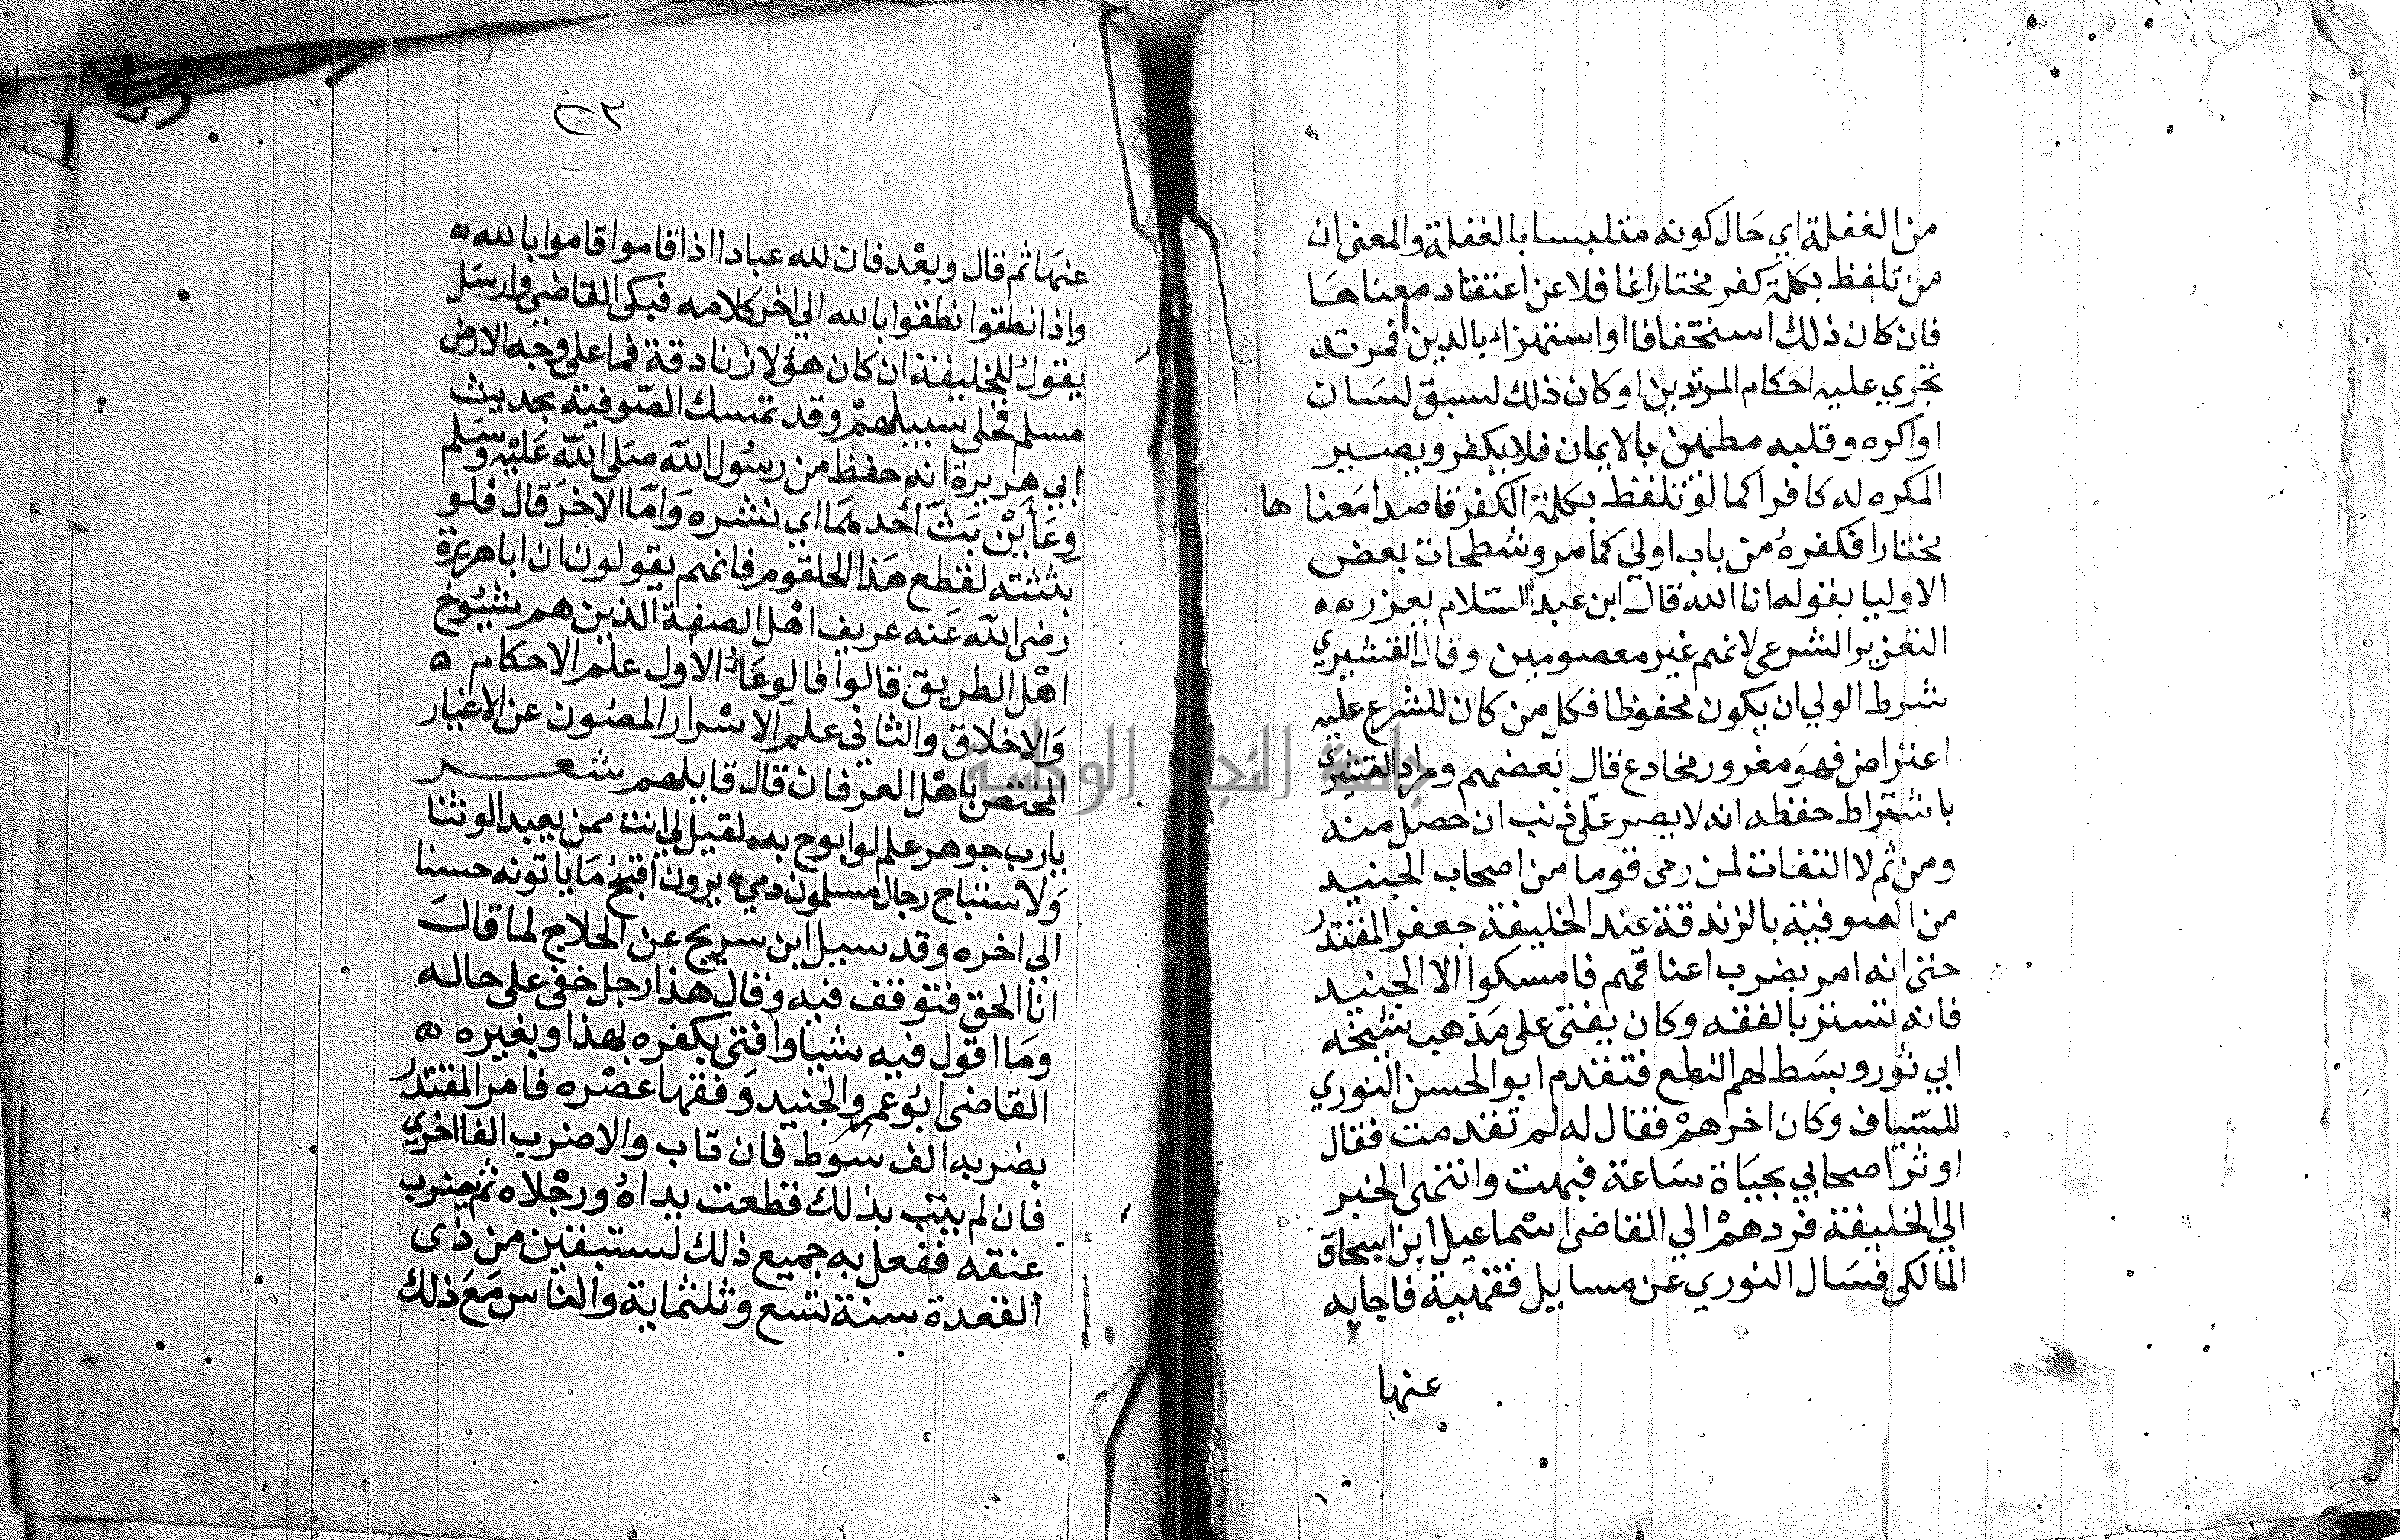 من الغفلة اي حَال كونه متلبسا بالغفلة والمعنى ان
من تلفظ بكلمة كفر مختارا غافلا عن اعتقاد معناهَا
فان كان ذلك استخفافا او استهزاء بالدين فمرتد
تجري عليه احكام المرتدين او كان ذلك لسبق لسَان
او اكره وقلبه مطمئن بالايمان فلا يكفر ويصير
المكره له كافرا كما لو تلفظ بكلمة الكفر قاصدا مَعناها
مختارا فكفرهُ من باب اولي كما مر وشطحات بعض
الاوليا بقوله انا الله قال ابن عبد السّلام يعزره
التعزير الشرعى لانهم غير معصومين وقال القشيري
شرط الولي ان يكون محفوظا فكل من كان للشرع عليه
اعتراض فهوَ مغرور مخادع قال بعضهم ومراد القشيري
باشتراط حفظه انه لا يصر على ذنب ان حصل منه
ومن ثم لا التفات لمن رمى قوما من اصحاب الجنيد
من الصوفية بالزندقة عند الخليفة جعفر المقتدر
حتى انه امر بضرب اعناقهم فامسكوا الا الجنيد
فانه تستر بالفقه وكان يفتى على مَذهب شيخه
ابي ثور وبسَط لهم النطع فتقدم ابو الحسن النوري
للسّياف وكان اخرهمْ فقال له لم تقدمت فقال
اوثر اصحابي بحيَاة سَاعة فبهت وانتهى الخبر
الي الخليفة فردهمْ الي القاضى اسْماعيل ابن اسحاق
المالكى فسَال النوري عن مسايل فقهية فاجابه
عنها
عنهَا ثم قال وبعْد فان لله عبادا اذا قاموا قاموا بالله
واذا نطقوا نطقوا بالله الي اخر كلامه فبكى القاضي وارسَل
يقولُ للخليفة ان كان هؤلا زنادقة فما على وجه الارض
مسلم فخلى سبيلهمْ وقد تمسك الصّوفية بحديث
ابي هريرة انه حفظ من رسُول الله صَلى الله عَليْه وسَلم
وِعَأيْن بَثّ أحدهمَا اي نشره وَامّا الاخرَ قال فلو
بثثته لقطع هَذا الحلقوم فانهم يقولون ان ابا هريرة
رضى الله عَنه عريف اهْل الصفة الذين هم شيُوخ
اهْل الطريق قالوا فالوِعَاء الاول علم الاحكام ه
وَالاخلاق والثاني علم الاسْرار المصُون عن الاغيار
المختص باهْل العرفان قال قايلهم شعر
يارب جوهر علم لو ابوح به لقيل لي انت ممن يعبد الوثنا
وَلاستباح رجال مسلمون دمي يرون اقبح مَا ياتونه حسنا
الى اخره وقد سيل ابن سريج عن الحلاج لما قالَ
انا الحق فتوقف فيه وقال هذا رجل خفى على حاله
ومَا اقول فيه شيا وافتى بكفره بهذا وبغيره
القاضى ابوُ عمر والجنيد وَفقها عصْره فامر المقتدر
بضربه الف سَوط فان تاب والا ضرب الفا اخري
فان لم يتب بذلك قطعت يداهُ ورجْلاه ثم يضرب
عنقه ففعل به جميع ذلك لست بقين من ذى
القعدة سنة تسع وثلثماية والناس مَعَ ذلك